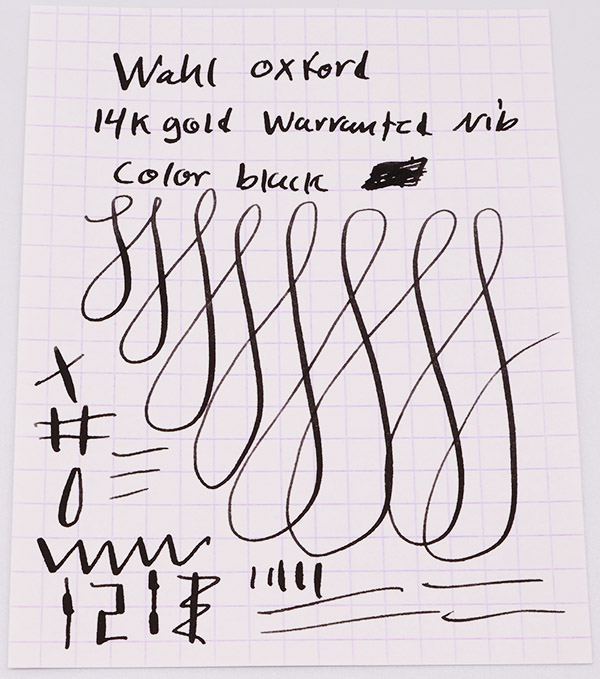 Wahl oxford
14K gold Warranted Nib
Color black
X
#
0